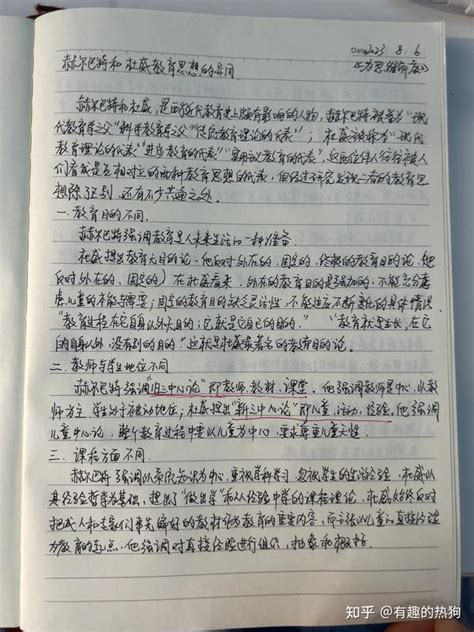 2023 8 6
赫尔巴特和杜威教育思想的异同
赫尔巴特和杜威,是西方近代教育史上颇有影响的人物,赫尔巴特被誉为“现
代教育学之父”“科学教育学之父”“传统教育理论的代表”;杜威被称为“现代
教育理论的代表”“进步教育的代表”“实用主义教育的代表”,这两位伟人往往被人
们看成是互相对立的两种教育思想的代表,但经过研究发现二者的教育思
想除区别,还有不少共通之处。
一、教育目的不同。
赫尔巴特强调教育是人未来生活的一种准备。
杜威提出教育无目的论。他反对外在的,固定的,终极的教育目的论,他
反对外在的,固定的)在杜威看来,外在的教育目的是强加的,不能充分考
虑儿童的本能与需要;固定的教育目的缺乏灵活性,不能适应不断更新的具体情况。
“教育过程在它自身以外无目的;它就是它自己的目的。”“教育就是生长,在它
的自身以外,没有别的目的”这就是杜威著名的教育目的论。
二、教师与学生地位不同。
赫尔巴特强调“旧三中心论”即教师、教材、课堂,他强调教师是中心,以教
师为主,学生处于被动地位;杜威提出“新三中心论”即儿童,活动,经验,他强调
儿童中心论,整个教育过程中要以儿童为中心,要求尊重儿童天性。
三、课程方面不同。
赫尔巴特强调以系统知识为中心,重视学科学习,忽视学生的生活经验,杜威以
其经验哲学为基础,提出了“做中学”和从经验中学的课程理论,杜威始终反对
把成人和专家们事先编好的教材作为教育的重要内容,而主张以儿童的直接经验
为教育的起点,他强调对直接经验进行组织,抽象和概括。
知乎 @有趣的热狗